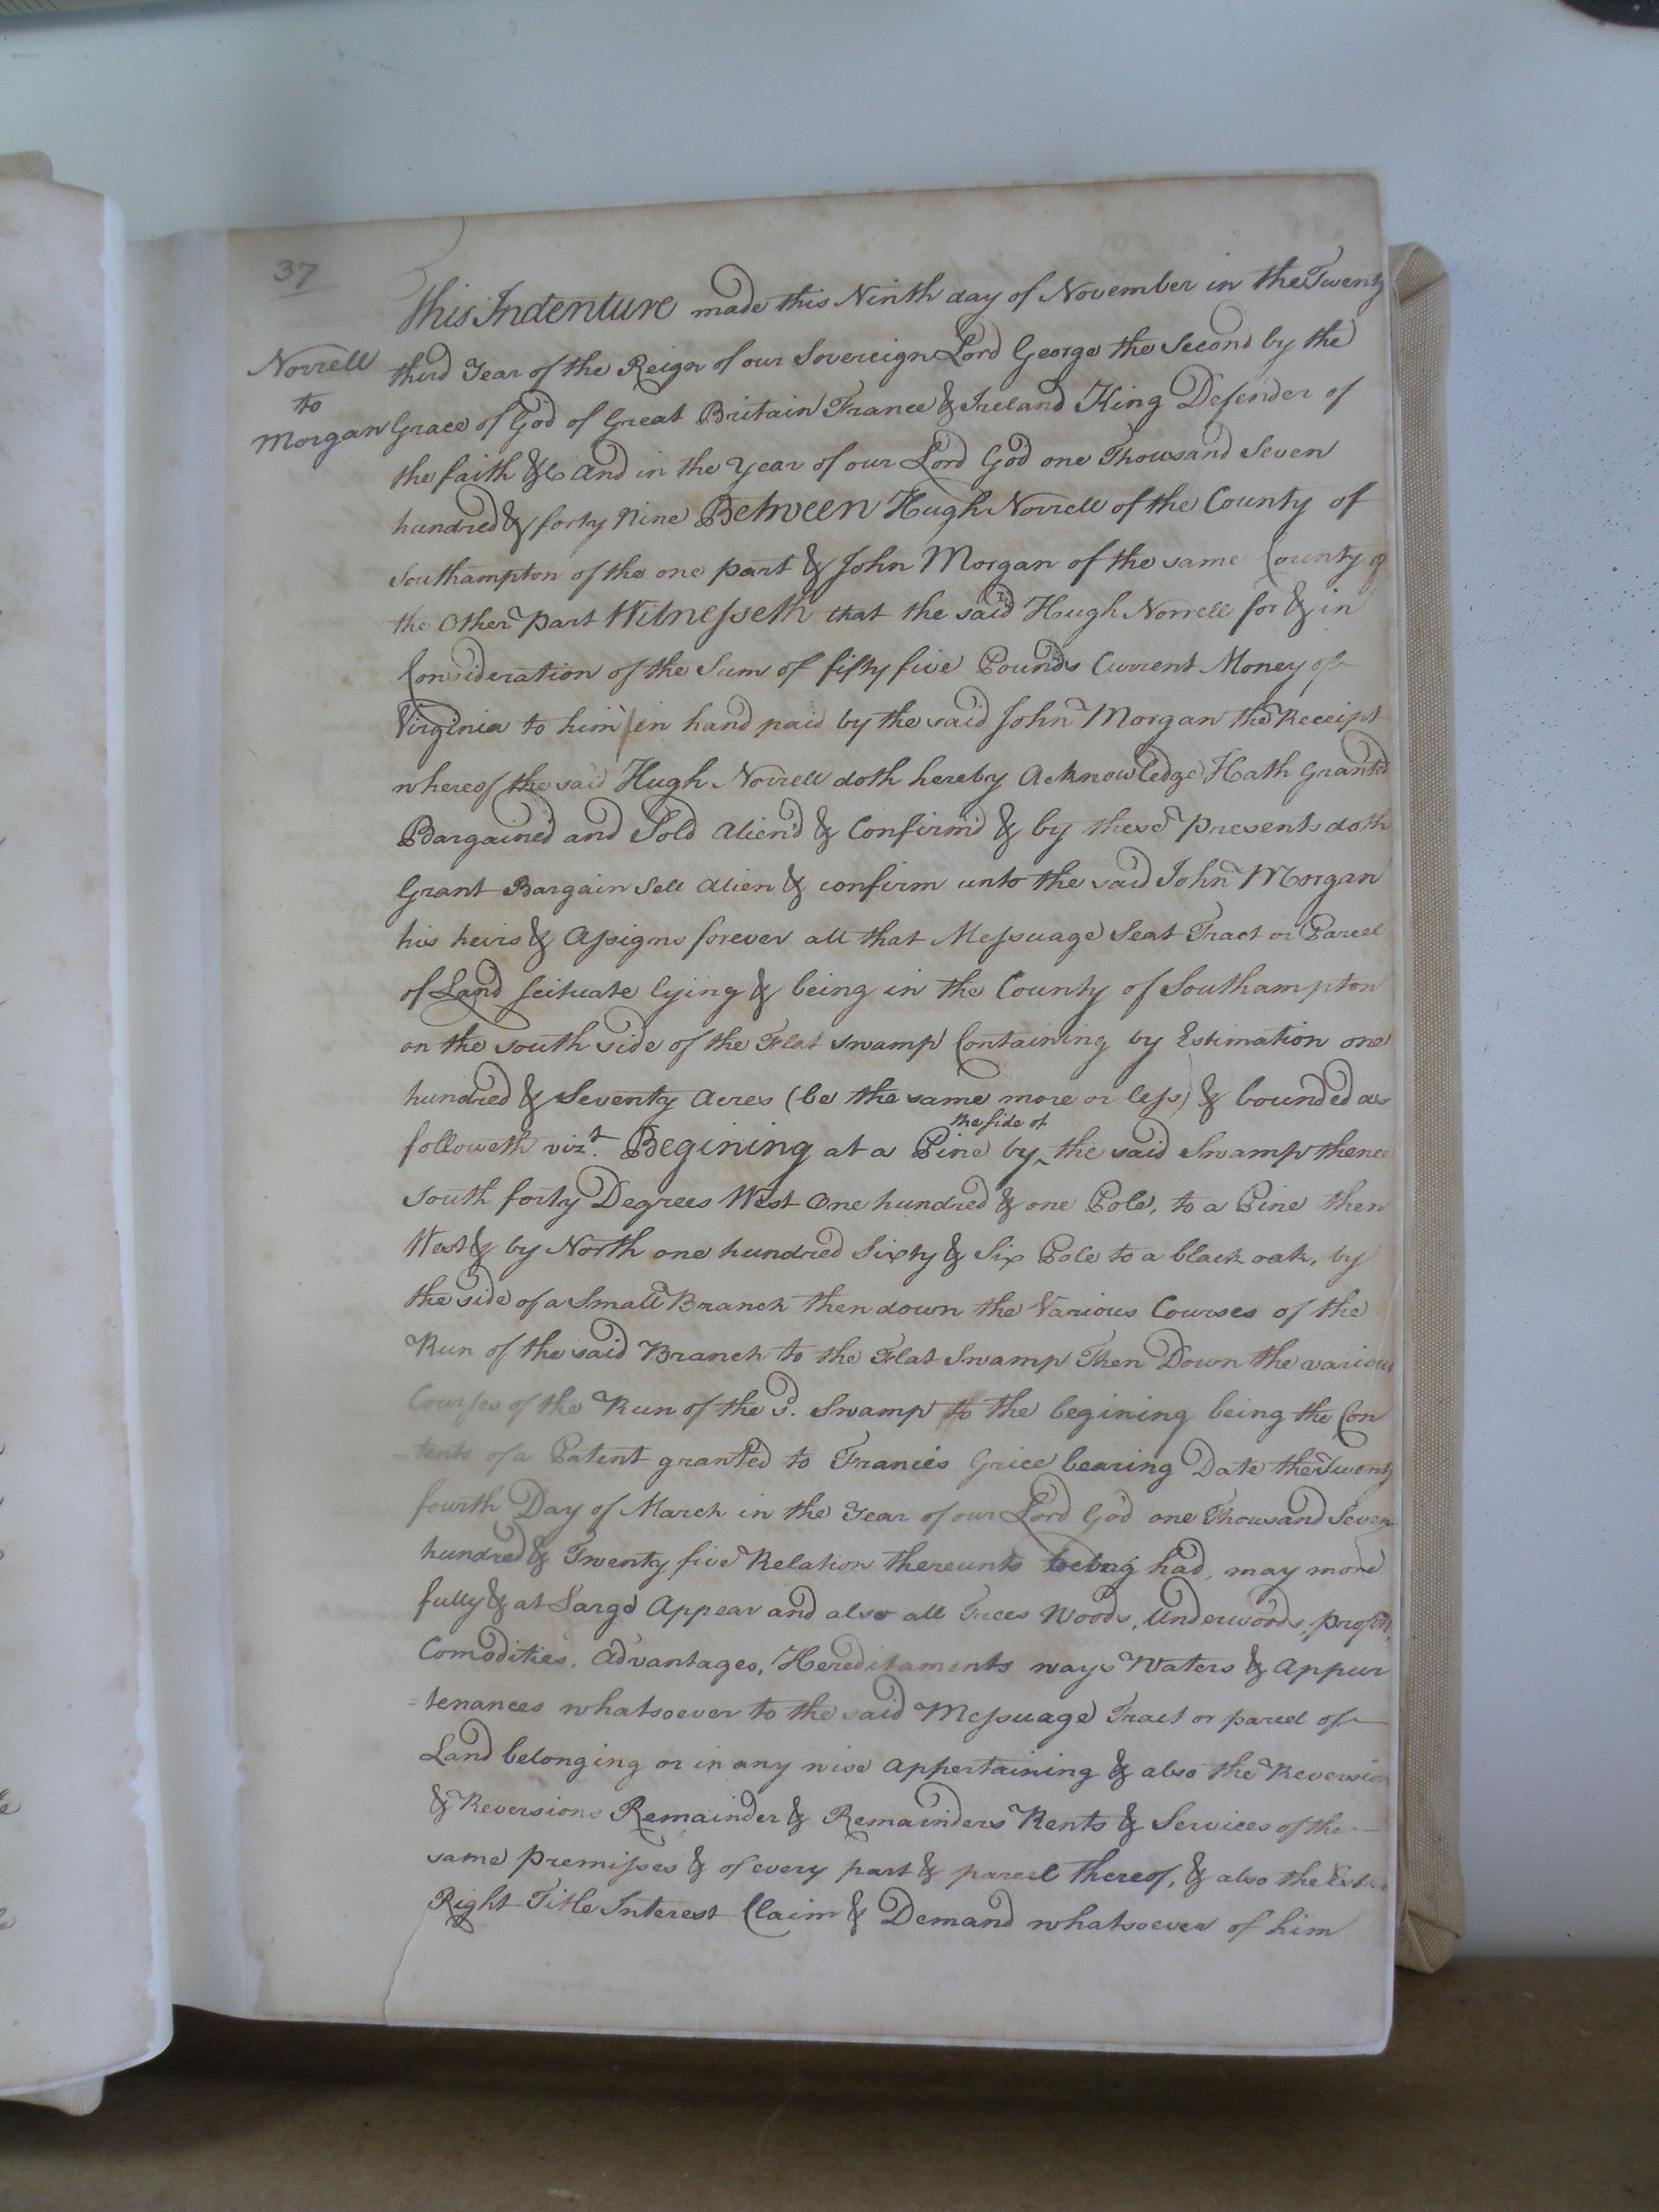 37
This Indenture made this Ninth day of November in the Twenty
Norrell
to
Morgan
third Year of the Reign of our Sovereign Lord George the Second by the
Grace of God of Great Britain France & Ireland King Defender of
the faith &c And in the Year of our Lord God one Thousand Seven
hundred & forty Nine Between Hugh Norrell of the County of
Southampton of the one part & John Morgan of the same County of
the Other Part Witnesseth that the said Hugh Norrell for & in
Consideration of the Sum of fifty five Pounds Current Money of
Virginia to him in hand paid by the said John Morgan the Receipt
whereof the said Hugh Norrell doth hereby Acknowledge Hath Granted
Bargained and Sold Alien'd & Confirm'd & by these Presents doth
Grant Bargain Sell Alien & confirm unto the said John Morgan
his heirs & Assigns forever all that Messuage Seat Tract or Parcel
of Land scituate lying & being in the County of Southampton
on the south side of the Flat swamp Containing by Estimation one
hundred & Seventy Acres (be the same more or less) & bounded as
followeth vizt. Begining at a Pine by the side of the said Swamp thence
South forty Degrees West One hundred & one Pole, to a Pine then
West & by North one hundred Sixty & Six Pole to a black oak, by
the side of a Small Branch then down the Various Courses of the
Run of the said Branch to the Flat Swamp Then Down the various
Courses of the Run of the sd. Swamp to the begining being the Con
-tents of a Patent granted to Francis Grice bearing Date the Twenty
fourth Day of March in the Year of our Lord God one Thousand Seven
hundred & Twenty five Relation thereunto being had, may more
fully & at Large Appear and also all Trees Woods, Underwoods,
Comodities, Advantages, Hereditaments ways Waters & Appur
=tenances whatsoever to the said Messuage Tract or parcel of
Land belonging or in any wise Appertaining & also the Reversion
& Reversions Remainder & Remainders Rents & Services of the
same Premisses & of every part & parcel thereof, & also the
Right Title Interest Claim & Demand whatsoever of him